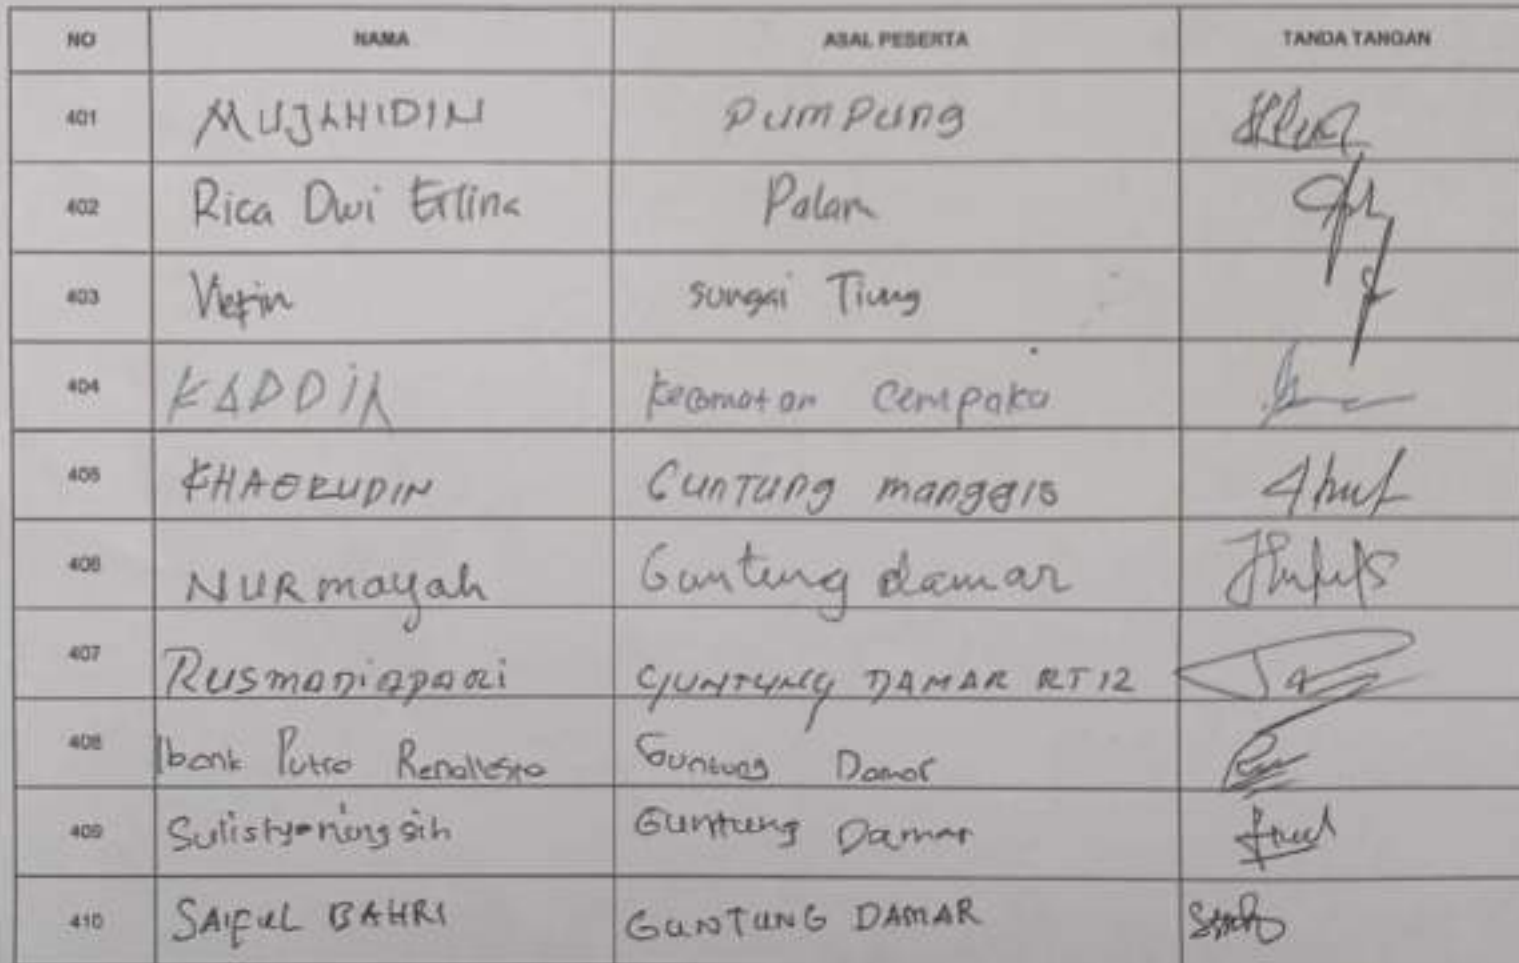 NO NAMA ASAL PESERTA TANDA TANGAN
401 MUJAHIDIN PumPung
402 Rica Dwi Erlina Palam
403 sungai Tiung
404 KADDIN kecamatan Cempaka
405 KHAERUDIN GunTung manggis
406 NURmayah Guntung damar
407 GUNTUNG DAMAR RT 12
408 Ibank Putra Guntung Damar
409 Sulistyaningsih Guntung Damar
410 SAIFUL BAHRI GUNTUNG DAMAR